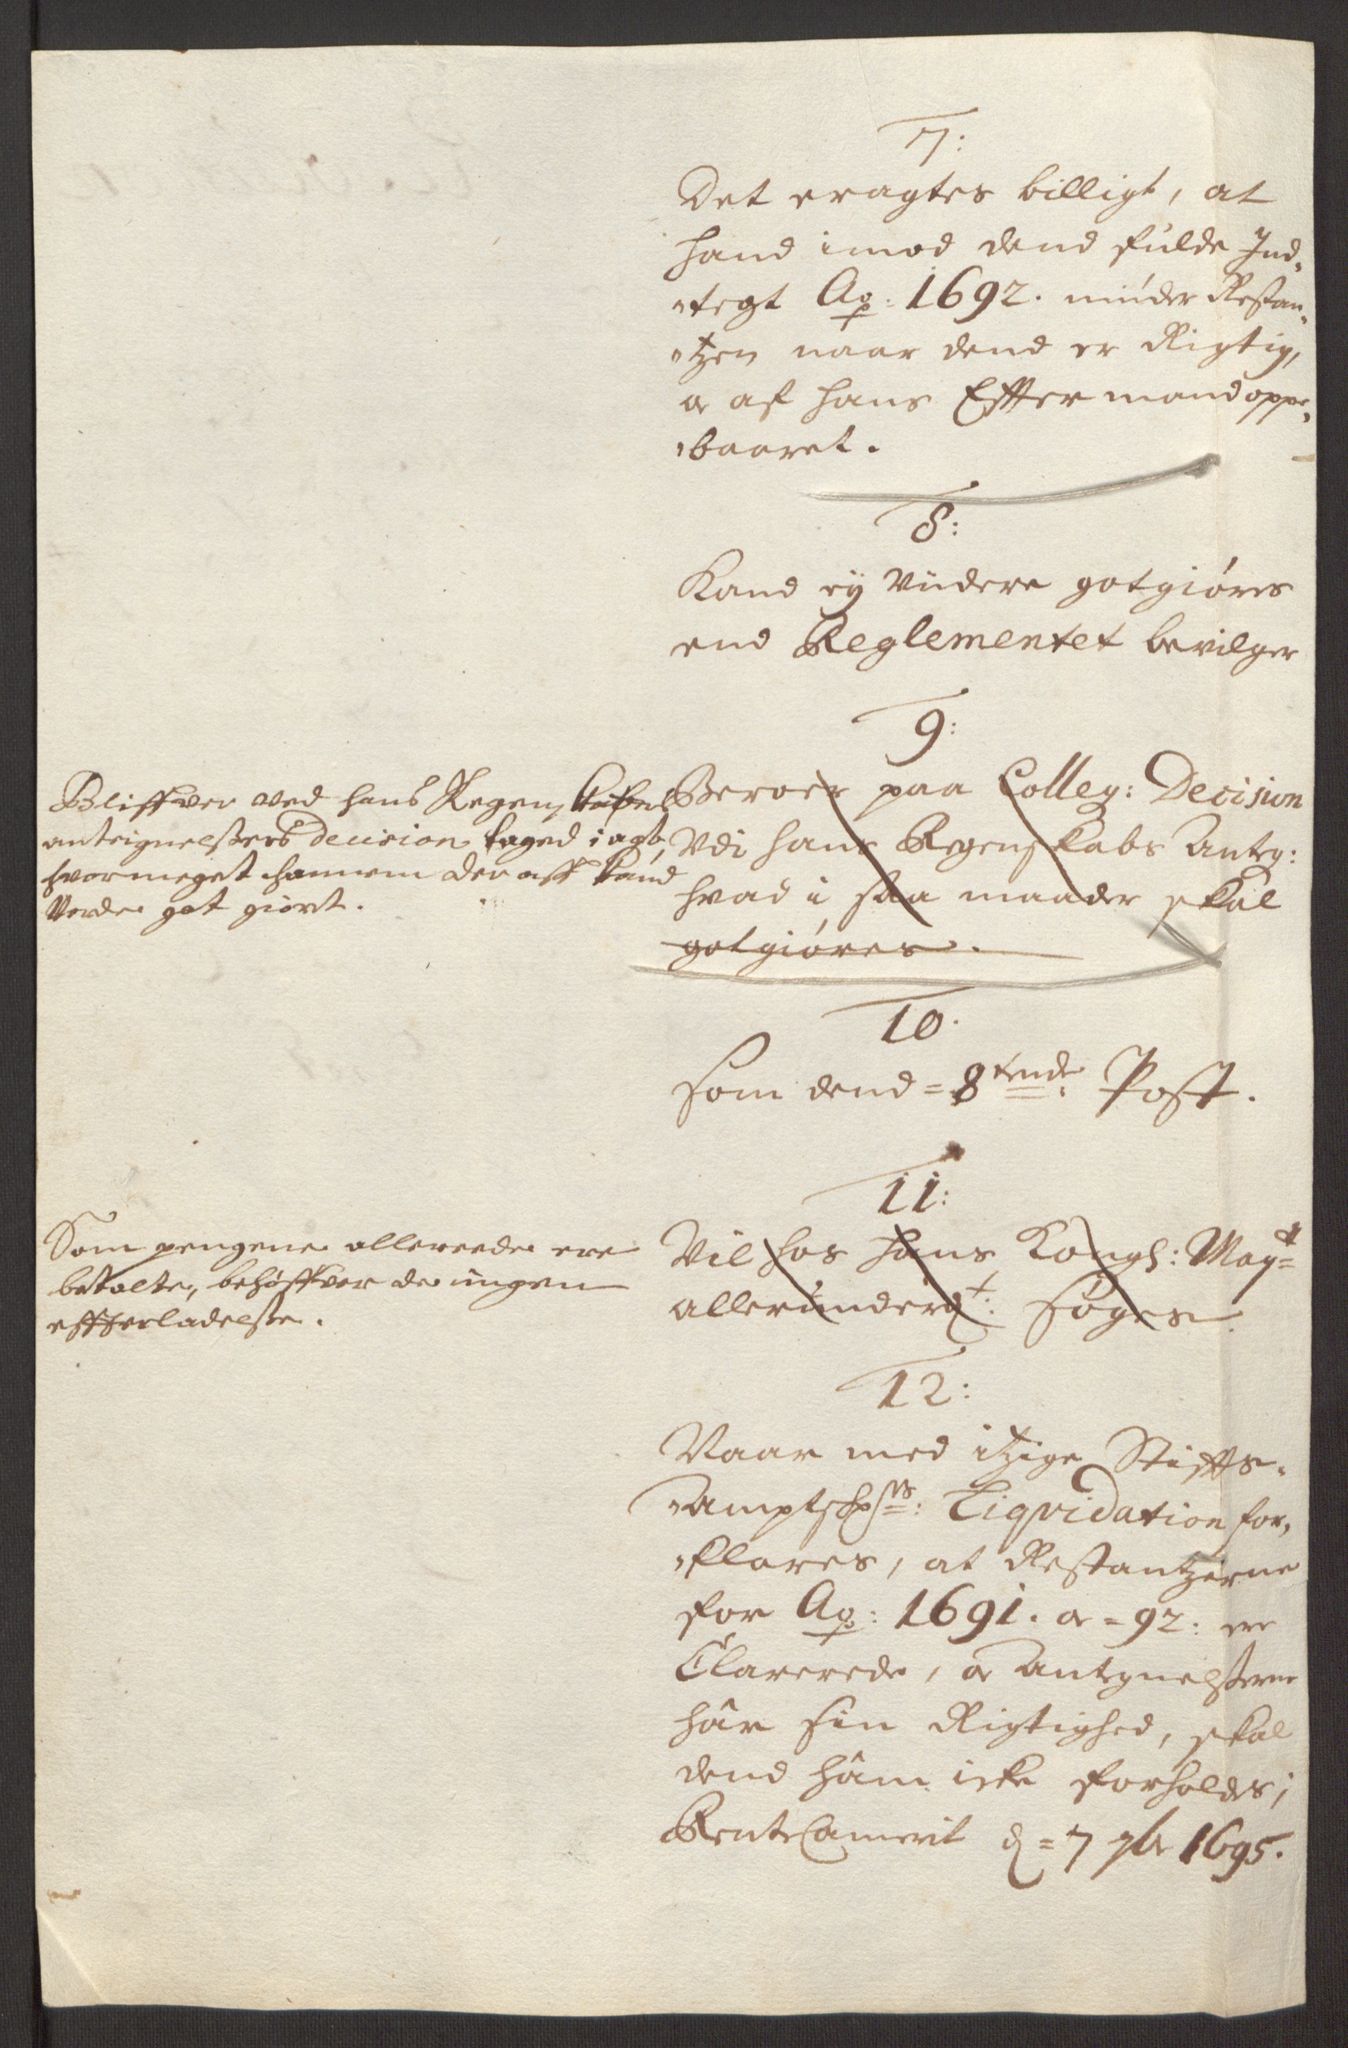 7:
Det eragtes billigt, at
hand imod dend fulde Ind-
-tegt Ao: 1692. minder Restan-
-tzen naar dend er Rigtig,
a af hans Effter mand oppe-
-baaret.
8:
Kand ey viidere gotgiöres
end Reglementet bevilger
9:
Beroer paa Colleg: Decision
Udi hans Regenskabs Anteg:
hvad i saa maader skal
gotgiöres.
Bliffver ved hans Regenskabes
anteignelßers Decision taged i agt,
hvormeget hannem der aff kand
Vorde got giort.
10.
Som dend = 8tende Post.
11:
Vil hos hans Kongl: Mayt
allerunderdt: söges.
Som pengene allereede ere
betalte, behöffver de ingen
effterladelße.
12:
Naar med itzige Stiffts-
-amptschrs: Liqvidation for-
-klares, at Restantzerne
for Ao: 1691. a = 92: ere
Clarerede, a Antegnelßerne
hâr sin Rigtighed, skal
dend hâm icke forholdes;
RenteCamerit d = 7 7br 1695.